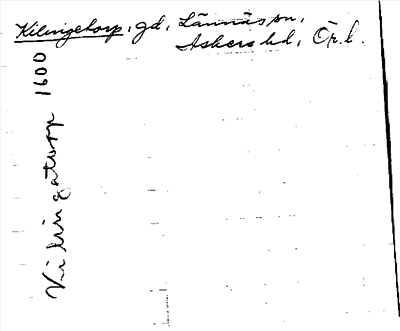 Kilingetorp, gd, Lännäs sn,
Askers hd, Ör. l.
Kilingatorp 1600